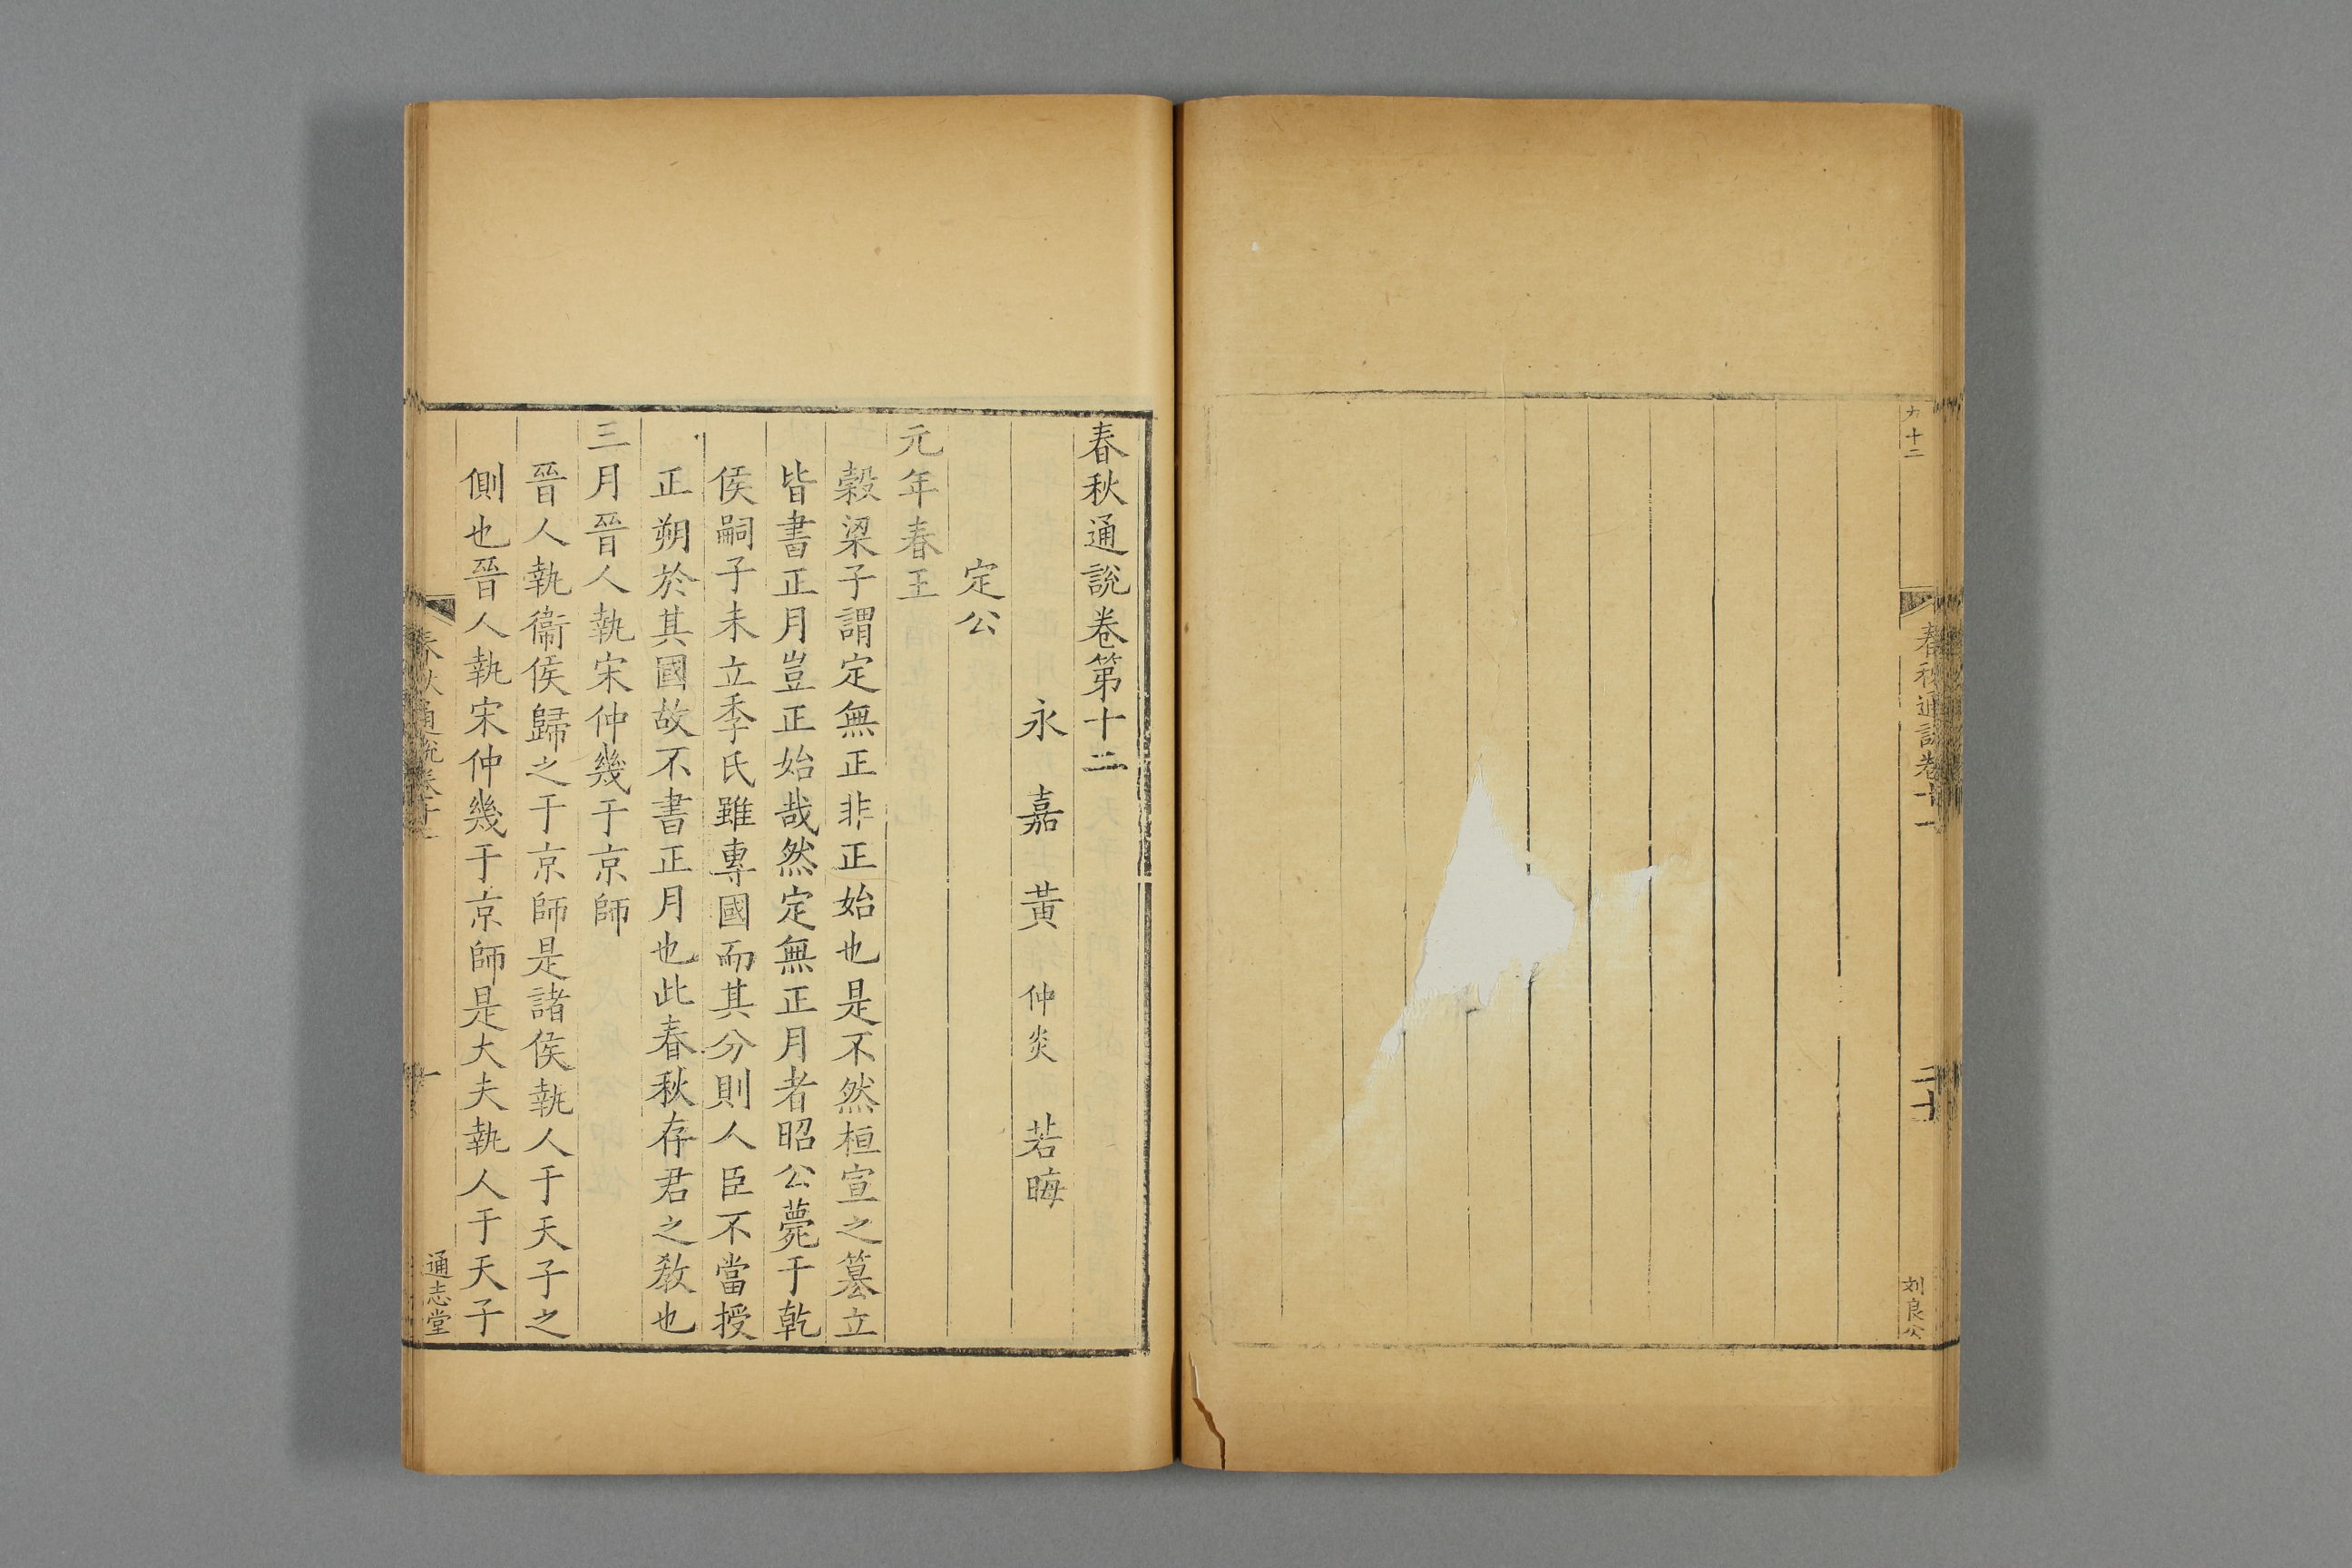 春秋通說卷十一
二十
刘良公
春秋通說卷第十二
永嘉黃仲炎若晦
定公
元年春王
穀梁子謂定無正非正始也是不然桓宣之簒立
皆書正月豈正始哉然定無正月者昭公薨于乾
侯嗣子未立季氏雖專國而其分則人臣不當授
正朔於其國故不書正月也此春秋存君之敎也
三月晉人執宋仲幾于京師
晉人執衞侯歸之于京師是諸侯執人于天子之
側也晉人執宋仲幾于京師是大夫執人于天子
春秋通說卷十二
一
通志堂